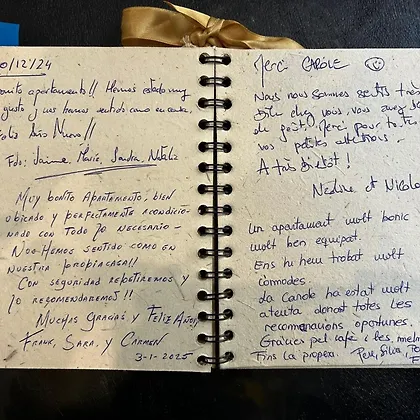 0/12/24
onito apartamento!! Hemos estado muy
gusto y nos hemos sentido como en casa,
Feliz Año Nuevo!!
Fdo: Jaime, María, Sandra, Natalia
Muy bonito Apartamento, bien
ubicado y perfectamente acondicio-
nado con todo lo necesario -
Nos hemos sentido como en
nuestra propia casa!!
Con seguridad repetiremos y
lo recomendaremos!!
Muchas Gracias y Feliz Año!,
Frank, Sara, y Carmen
3-1-2025
Merci CAROLE
Nous nous sommes sentis très
bien chez vous, vous avez
de goût, Merci pour toutes
vos petites attentions.
A très bientôt!
Nadine et Nicolas
Un apartament molt bonic
molt ben equipat.
Ens hi hem trobat molt
còmodes.
La Carole ha estat molt
atenta donant totes les
recomanacions oportunes.
Gràcies pel cafè i les
Fins la propera. Pere, Silvia,